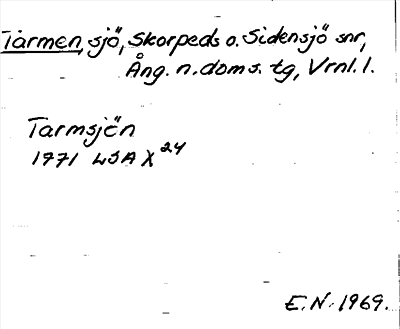 Tarmen, sjö, Skorpeds o. Sidensjö snr,
Ång. n. doms. tg, Vrnl. l.
Tarmsjön
1771 LSA X 24
E. N. 1969.